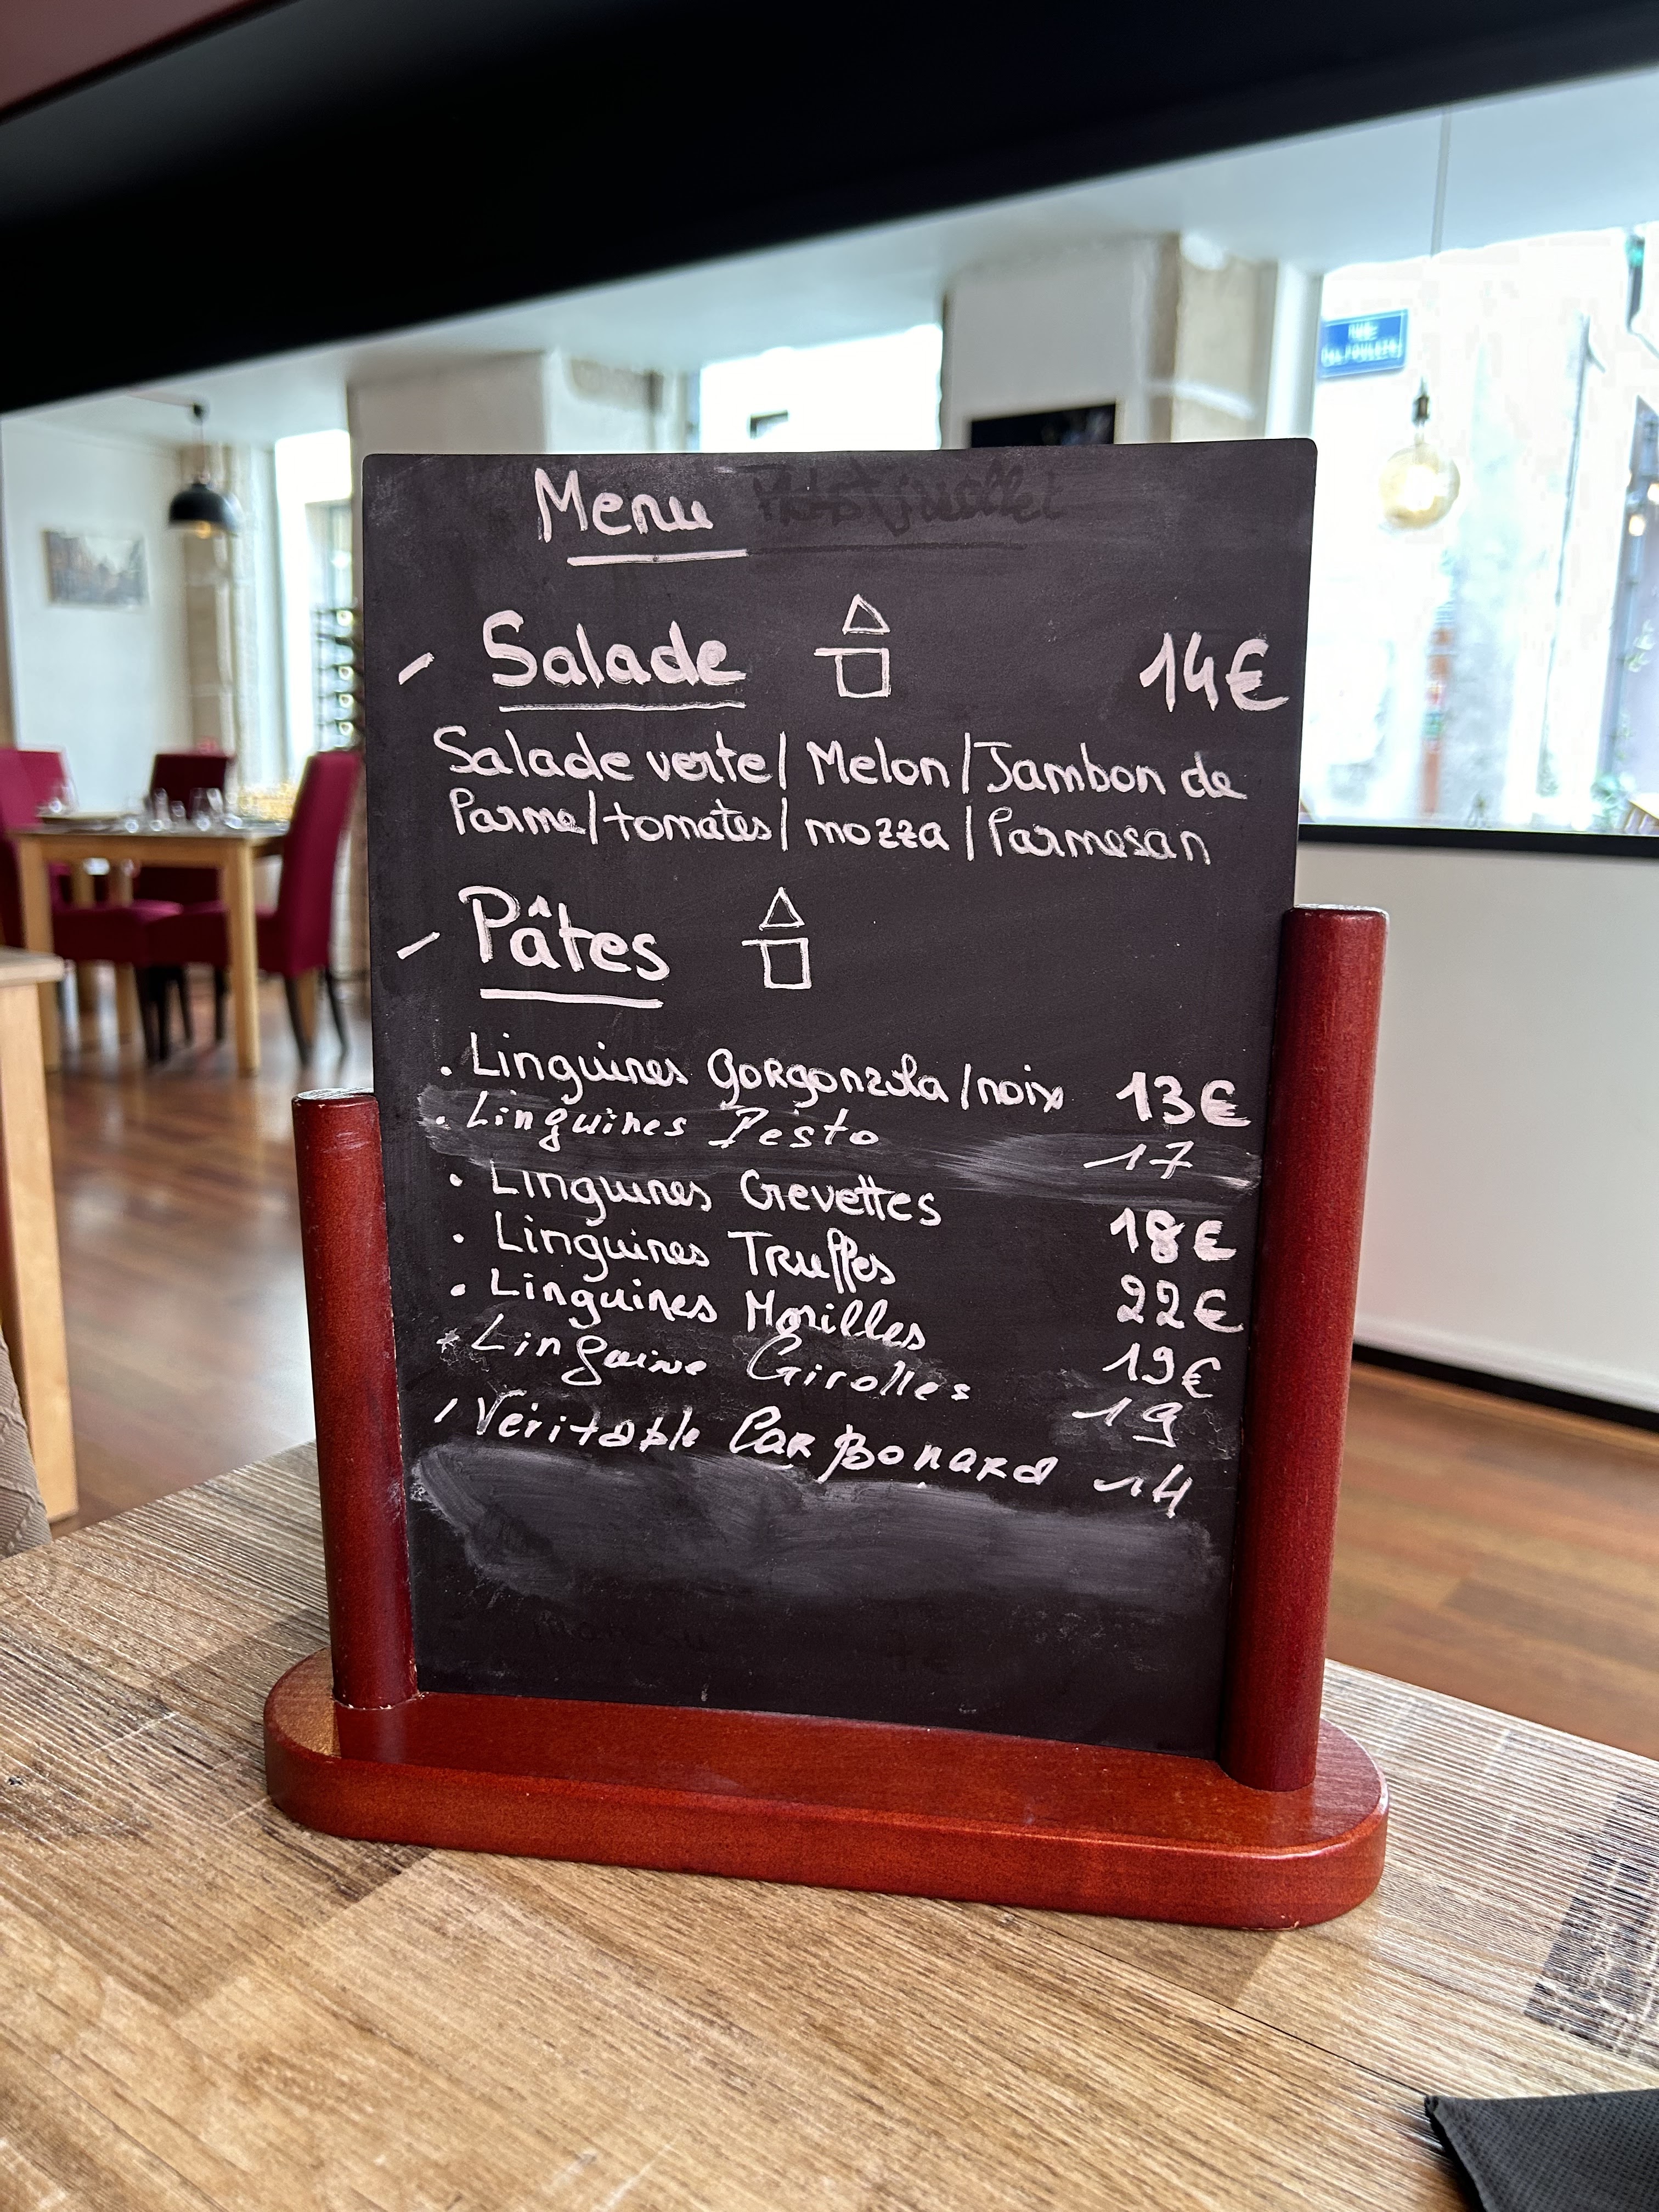 Menu
Salade 14€
Salade verte/ Melon/Jambon de
Parme/tomates/ mozza/Parmesan
Pâtes
. Linguines gorgonzola/noix 13€
. Linguines Pesto 17
. Linguines Crevettes 18€
. Linguines Truffes 22€
. Linguines Morilles 19€
* Linguine Girolles 19
/ Veritable CarBonara 14
RUE